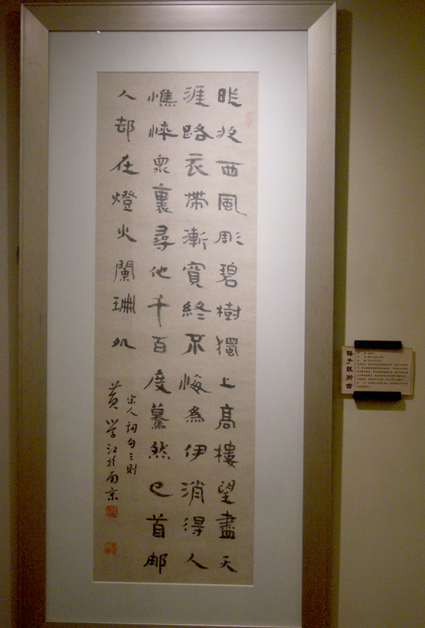 昨夜西風彫碧樹獨上高樓望盡天
涯路衣帶漸寬終不悔為伊消得人
憔悴衆裏尋他千百度驀然回首那
人却在燈火闌珊処
宋人詞句三則
黄学江於南京